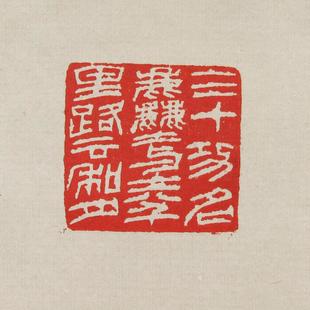 三十功名
塵与土八千
里路云和月